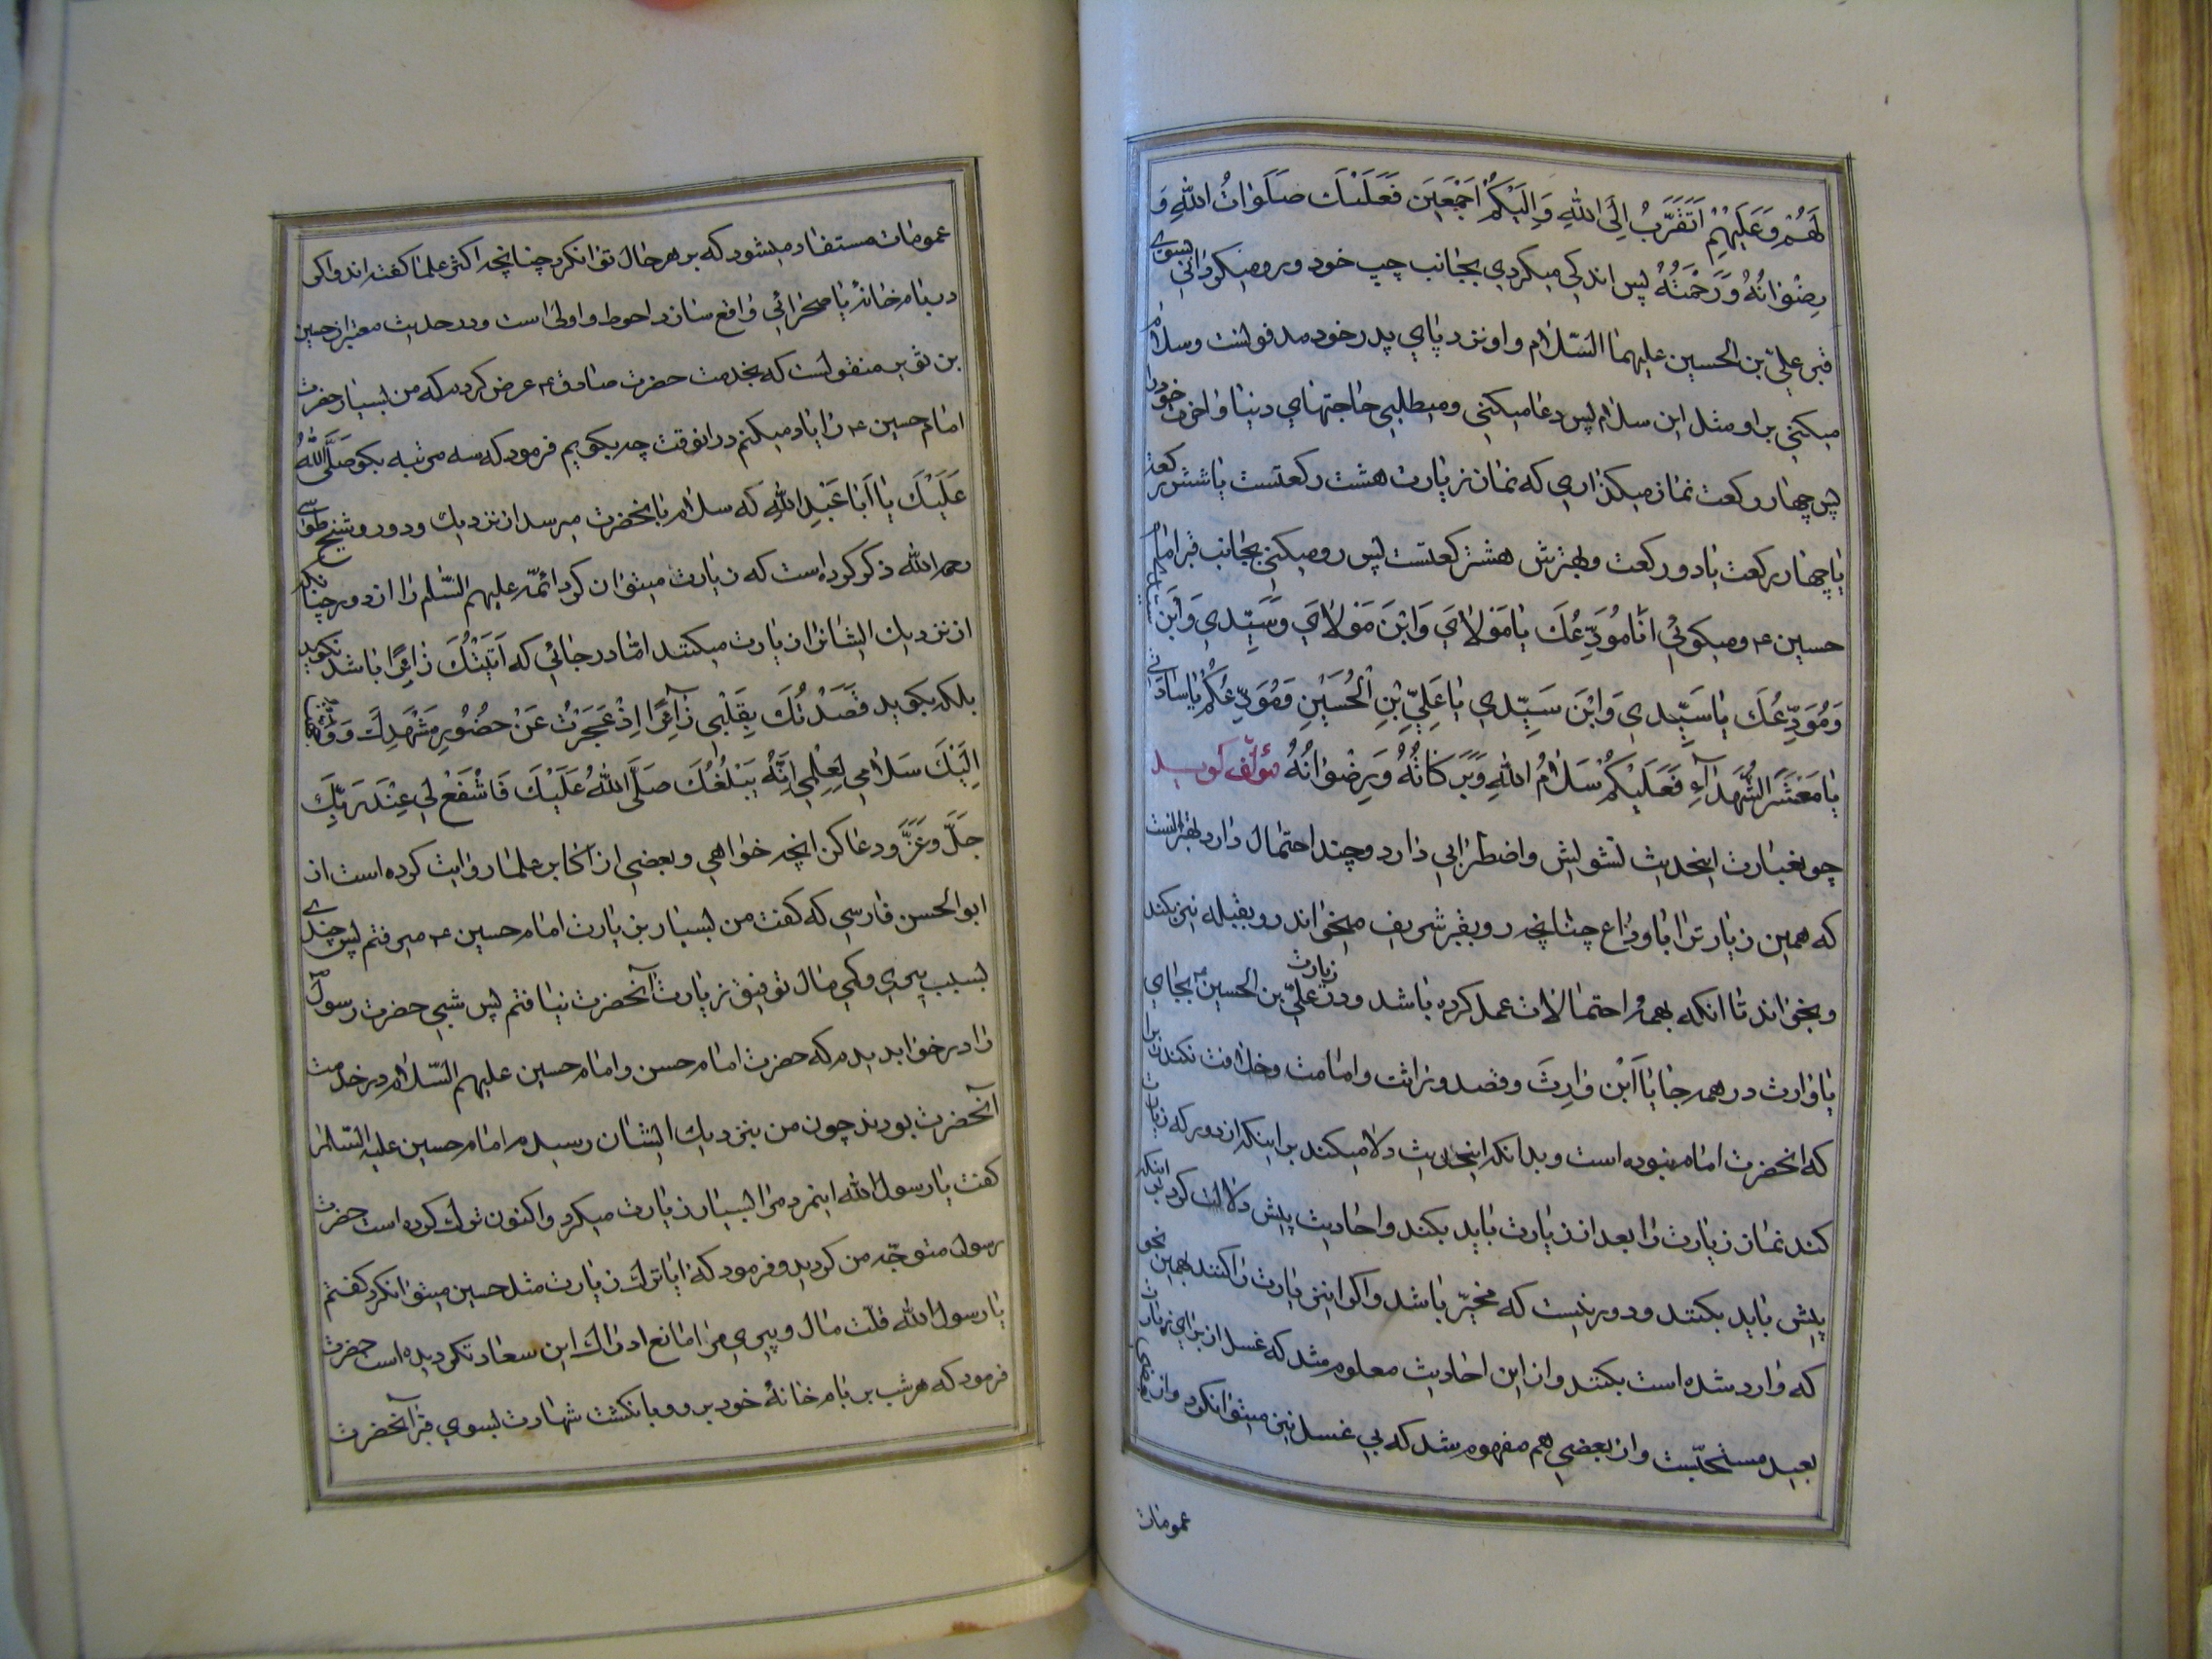 لَهُمْ وَعَلَيْهِمْ اَتَقَرَّبُ اِلَى اللهِ وَاِلَيْكُمْ اَجْمَعِينَ فَعَلَيْكَ صَلَوَاتُ اللهِ وَ
رِضْوَانُهُ وَرَحْمَتُهُ پس اندکی میکردی بجانب چپ خود ورو میکردانی بسوی
قبر علیّ بن الحسین علیهما السّلام واو نزد پای پدر خود مدفونست وسلام
میکنی براو مثل این سلام پس دعا میکنی ومیطلبی حاجتهای دنیا واخرت خود را
پس چهار رکعت نماز میکذاری که نماز زیارت هشت رکعتست یا شش رکعت
یا چهار رکعت یا دو رکعت وبهترش هشت رکعتست پس رو میکنی بجانب قبر امام
حسین ع ومیکوئی اَنَا مُوَدِّعُكَ يَا مَوْلَايَ وَابْنَ مَوْلَايَ وَسَيِّدِي وَابْنَ
وَمُوَدِّعُكَ يَا سَيِّدِي وَابْنَ سَيِّدِي يَا عَلِيَّ بْنَ الْحُسَيْنِ وَمُوَدِّعُكُمْ يَا سَادَتِي
يَا مَعْشَرَ الشُّهَدَآءِ فَعَلَيْكُمْ سَلَامُ اللهِ وَبَرَكَاتُهُ وَرِضْوَانُهُ مؤلّف کوید
چون عبارت اینحدیث تشویش واضطرابی دارد وچند احتمال دارد بهتر انست
که همین زیارترا با وداع چنانچه رو بقبر شریف میخواند رو بقبله نیز بکند
وبخواند تا انکه بهمهٔ احتمالات عمل کرده باشد ودر زیارت علیّ بن الحسین ع بجای
یا وارث در همه جا یا اَبْن وارِثَ وقصد وراثت وامامت وخلافت نکند زیرا
که انحضرت امام نبوده است وبدانکه اینحدیث دلالت میکند بر اینکه از دور که زیارت
کند نماز زیارت را بعد از زیارت باید بکند واحادیث پیش دلالت کرد بر اینکه
پیش باید بکنند ودور نیست که مخیّر باشد واکر این زیارت را کنند بهمین نحو
که وارد شده است بکنند واز این احادیث معلوم شد که غسل از برای زیارت
بعید مستحبّست واز بعضی هم مفهوم شد که بی غسل نیز میتوانکرد واز بعضی
عمومات
عمومات مستفاد میشود که بر هر حال توانکرد چنانچه اکثر علما کفته اند واکر
در بام خانهٔ یا صحرائی واقع سازد احوط واولی است ودر حدیث معتبر از حسین
بن ثویر منقولست که بخدمت حضرت صادق ع عرض کردم که من بسیار حضرت
امام حسین ع را یاد میکنم در انوقت چه بکویم فرمود که سه مرتبه بکو صَلَّى اللهُ
عَلَيْكَ يَا اَبَا عَبْدِ اللهِ که سلام بانحضرت میرسد از نزدیك ودور وشیخ طوسی
رحمه الله ذکر کرده است که زیارت میتوان کرد ائمّه علیهم السّلم را از دور چنانکه
از نزدیك ایشانرا زیارت میکنند امّا در جائی که اَتَيْتُكَ زَائِرًا باشد نکوید
بلکه بکوید قَصَدْتُكَ بِقَلْبِي زَآئِرًا اِذْ عَجَزْتُ عَنْ حُضُورِ مَشْهَدِكَ وَوَجَّهْتُ
اِلَيْكَ سَلَامِي لِعِلْمِي اِنَّهُ يَبْلُغُكَ صَلَّى اللهُ عَلَيْكَ فَاشْفَعْ لِي عِنْدَ رَبِّكَ
جَلَّ وَعَزَّ ودعا کن انچه خواهی وبعضی از اکابر علما روایت کرده است از
ابو الحسن فارسی که کفت من بسیار بزیارت امام حسین ع میرفتم پس چندی
بسبب پیری وکمی مال توفیق زیارت آنحضرت نیافتم پس شبی حضرت رسول ص
را در خواب دیدم که حضرت امام حسن وامام حسین علیهم السّلام در خدمت
آنحضرت بودند چون من بنزدیك ایشان رسیدم امام حسین علیه السّلام
کفت یا رسول الله اینمرد مرا بسیار زیارت میکرد واکنون ترك کرده است حضرت
رسول متوجّه من کردید وفرمود که ایا ترك زیارت مثل حسین میتوانکرد کفتم
یا رسول الله قلّت مال وپیری مرا مانع ادراك این سعادت کردیده است حضرت
فرمود که هر شب بر بام خانهٔ خود برو وبا نکشت شهادت بسوی قبر آنحضرت